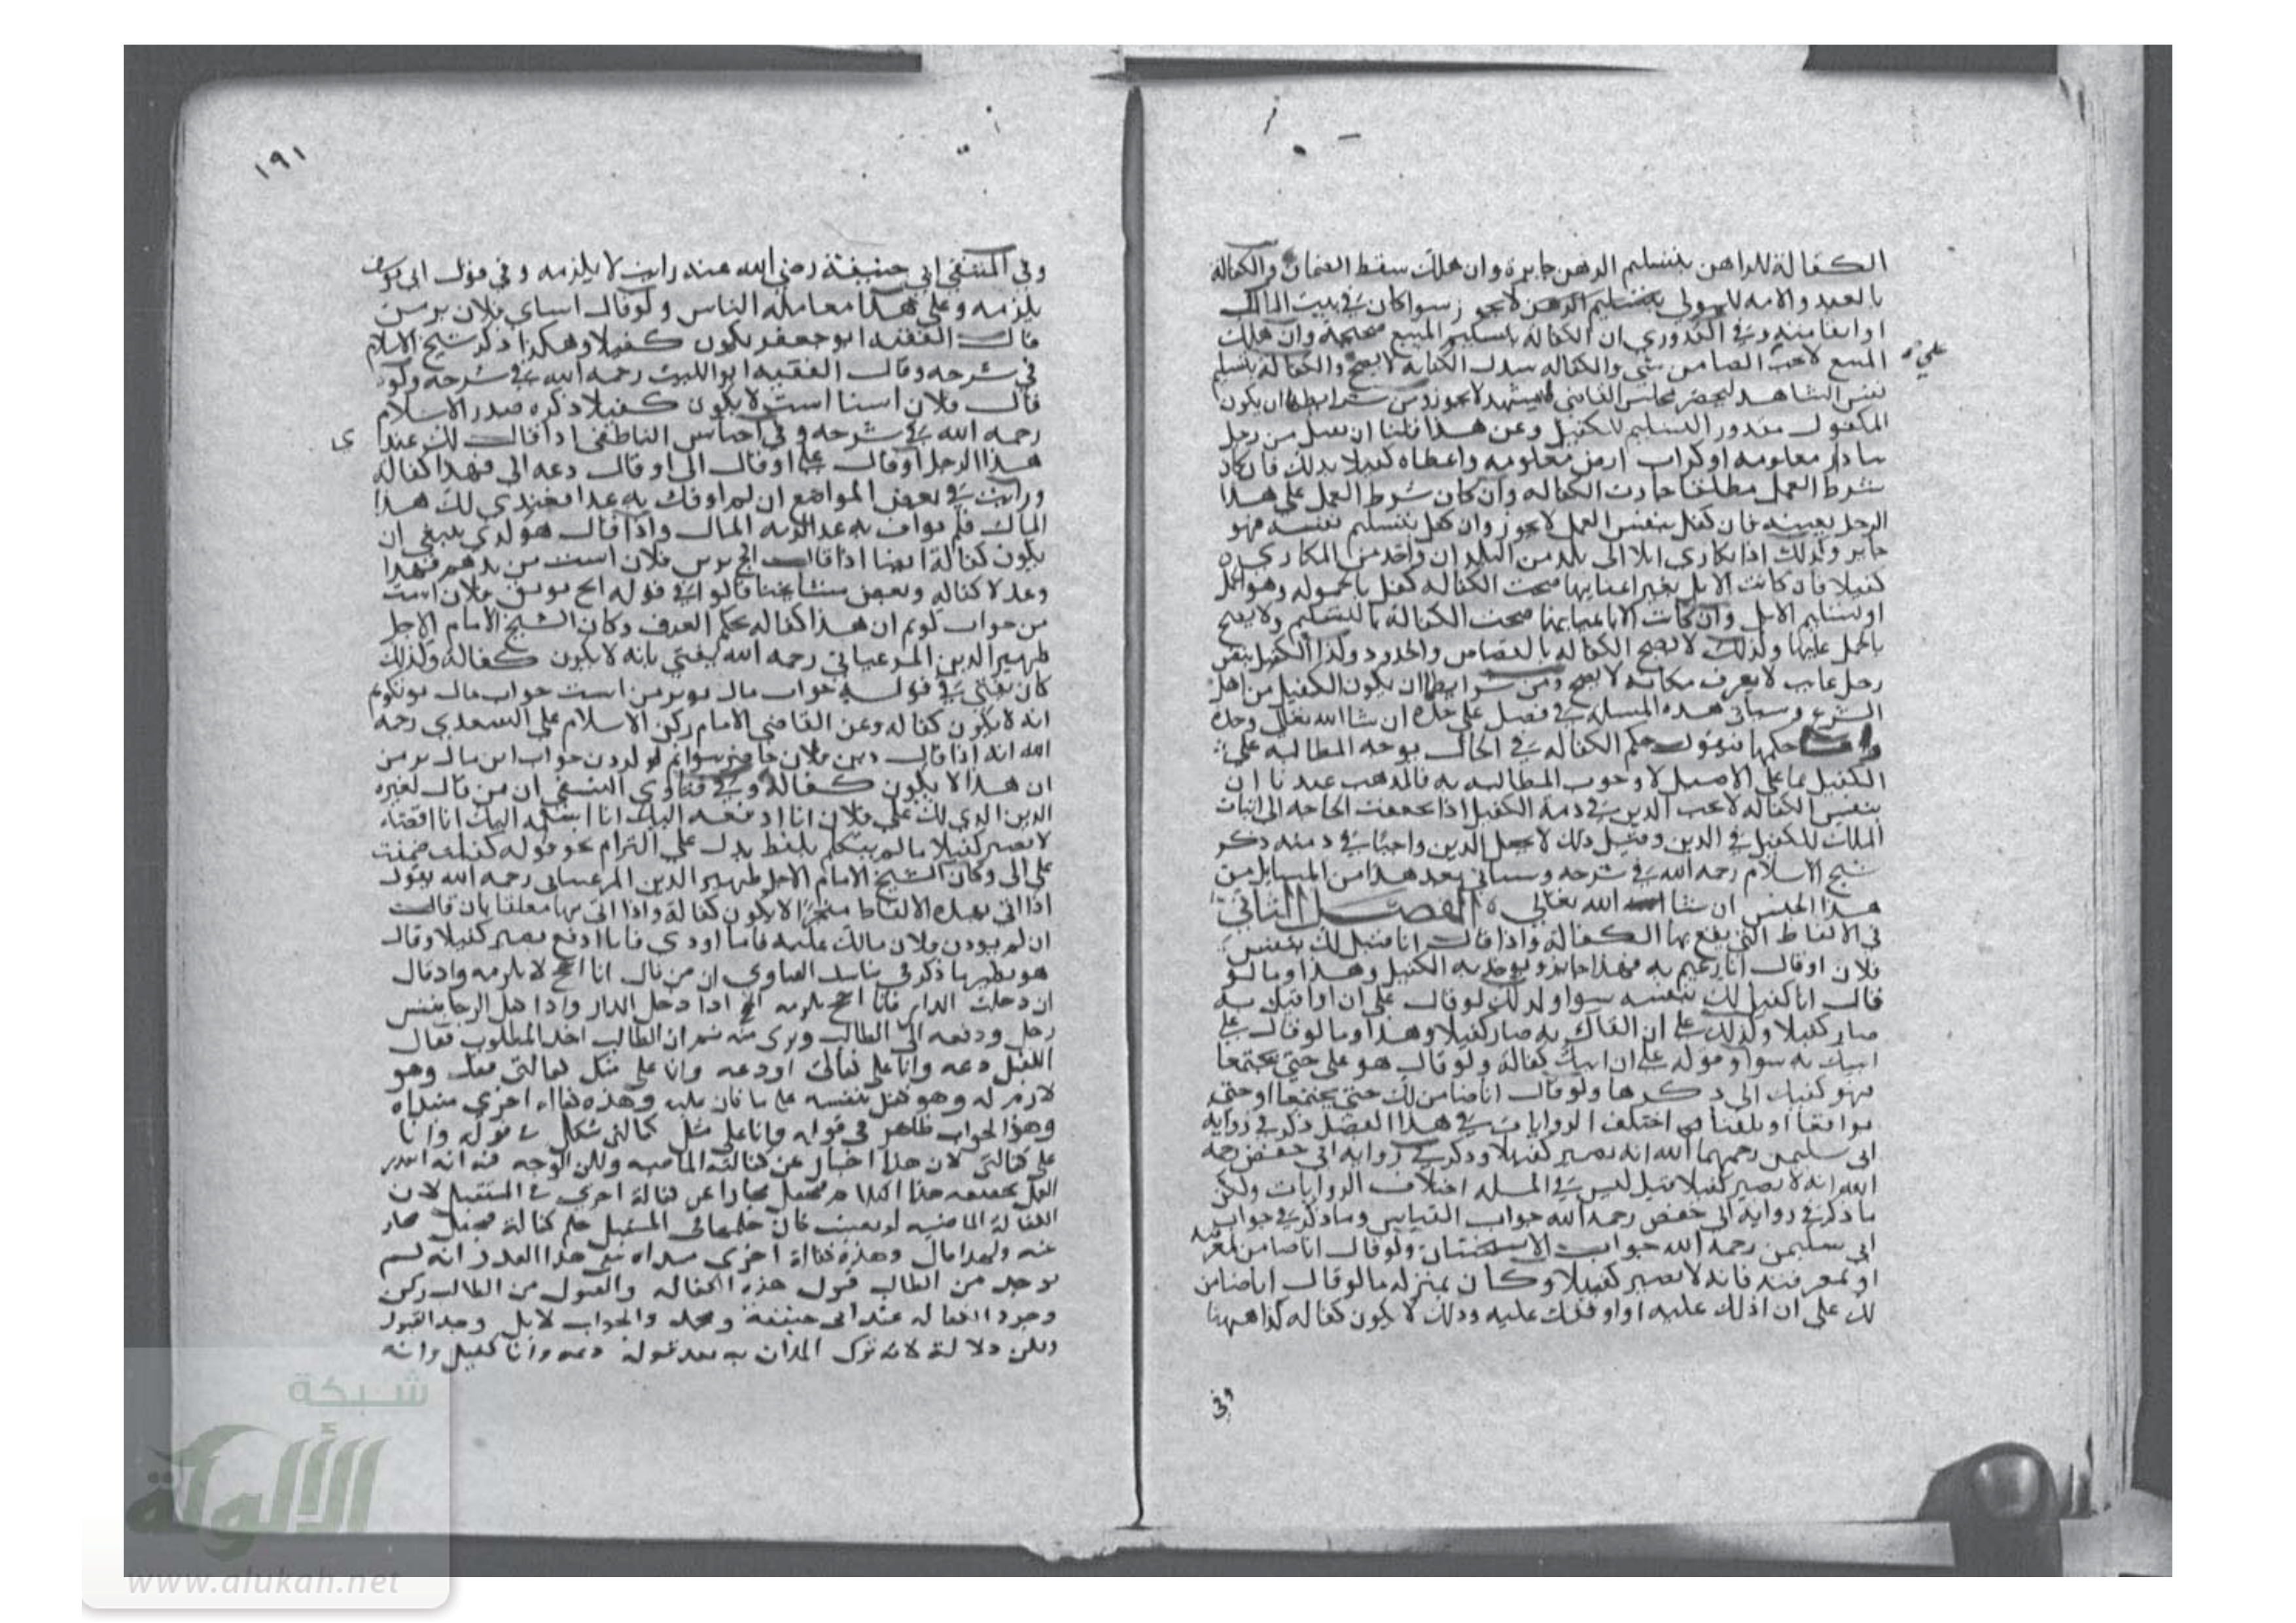 الكفالة للراهن بتسليم الرهن جايزة وان هلك سقط الضمان والكفالة
بالعبد والامه للمولى بتسليم الرهن لا يجوز سوا كان في بيت المالك
او ابقا منه وفي القدوري ان الكفالة بتسليم المبيع صحيحة وان هلك
المبيع لا يجب الضامن شي والكفاله ببدل الكتابه لا يصح والكفالة بتسليم
نفس الشاهد ليحضر مجلس القاضي فيشهد لا يجوز ومن شرايطها ان يكون
المكفول مقدور التسليم للكفيل وعن هذا قلنا ان من رجل
دار معلومه او كراب ارض معلومه واعطاه كفيلا بذلك فان كان
شرط العمل مطلقا جازت الكفاله وان كان شرط العمل على هذا
الرجل بعينه فان كفل بنفس العمل لا يجوز وان كفل بتسليم نفسه فهو
جايز وكذلك اذا تكارى ابلا الى بلد من البلدان واخذ من المكاري
كفيلا فان كانت الابل بغير اعيانها صحت الكفاله كفل بالحموله وهو الحمل
او بتسليم الابل وان كانت الابل باعيانها صحت الكفالة بالتسليم ولا يصح
بالحمل عليها وكذلك لا يصح الكفاله بالقصاص والحدود وكذا الكفيل بنفس
رجل غايب لا يعرف مكانه لا يصح ومن شرايطها ان يكون الكفيل من اهل
التبرع وسياتي هذه المسله في فصل على حده ان شا الله تعالى وحده
واما حكمها فنقول حكم الكفاله في الحال توجه المطالبه على
الكفيل بما على الاصيل لا وجوب المطالبه به فالمذهب عندنا ان
بنفس الكفاله لا يجب الدين في ذمة الكفيل اذا تحققت الحاجه الى اثبات
الملك للكفيل في الدين وقبل ذلك لا يجعل الدين واجبا في ذمته ذكر
شيخ الاسلام رحمه الله في شرحه وسياتي بعد هذا من المسايل من
هذا الجنس ان شا الله تعالى الفصل الثاني
في الالفاظ التي يقع بها الكفالة واذا قال انا قبيل لك بنفس
فلان او قال انا زعيم به فهذا جايز ويوخذ به الكفيل وهذا وما لو
قال انا كفيل لك بنفسه سوا وكذلك لو قال على ان اوافيك به
صار كفيلا وكذلك على ان القاك به صار كفيلا وهذا وما لو قال على
اتيك به سوا وقوله على ان اتيك كفالة ولو قال هو على حتى تجتمعا
فهو كفيل الى ذكرها ولو قال انا ضامن لك حتى تجتمعا او حتى
توافقا او تلقيا فقد اختلف الروايات في هذا الفصل ذكر في رواية
ابي سليمن رحمهما الله انه يصير كفيلا وذكر في رواية ابي حفص رحمه
الله انه لا يصير كفيلا قيل ليس في المسله اختلاف الروايات ولكن
ما ذكر في رواية ابي حفص رحمه الله جواب القياس وما ذكر في جواب
ابي سليمن رحمه الله جواب الاستحسان ولو قال انا ضامن لمعرفته
او لمعرفته فانه لا يصير كفيلا وكان بمنزله ما لو قال انا ضامن
لك على ان ادلك عليه او اوقفك عليه وذلك لا يكون كفاله كذا ههنا
وفي
١٩١
وفي المنتقى ابي حنيفة رضي الله عنه رايت لا يلزمه وفي قول ابي يوسف
يلزمه وعلى هذا معاملة الناس ولو قال اسناي فلان بر من
قال الفقيه ابو جعفر يكون كفيلا وهكذا ذكر شيخ الاسلام
في شرحه وقال الفقيه ابو الليث رحمه الله في شرحه ولو
قال فلان اسنا است لا يكون كفيلا ذكره صدر الاسلام
رحمه الله في شرحه وفي اجناس الناطفي اذا قال لك عندي
هذا الرجل او قال على او قال الى او قال دعه الى فهذا كفالة
ورايت في بعض المواضع ان لم اوفك به غدا فعندي لك هذا
المال فلم يواف به غدا لزمه المال واذا قال هو لدي ينبغي ان
يكون كفالة ايضا اذا قال بر فلان است من بدهم فهذا
وعد لا كفاله وبعض مشايخنا قالوا في قوله بر فلان است
من جواب كويم ان هذا كفاله بحكم العرف وكان الشيخ الامام الاجل
ظهير الدين المرغيناني رحمه الله يفتي بانه لا يكون كفالة وكذلك
كان يفتي في قوله جواب مال تو بر من است جواب مال تو نكوم
انه لا يكون كفاله وعن القاضي الامام ركن الاسلام على السعدي رحمه
الله انه اذا قال فلان جواب اين مال بر من
ان هذا لا يكون كفالة وفي فتاوى النسفي ان من قال لغيره
الدين الذي لك على فلان انا ادفعه اليك انا اسلمه اليك انا اقضيه
لا يصير كفيلا ما لم يتكلم بلفظ يدل على التزام نحو قوله كفلت ضمنت
على الى وكان الشيخ الامام الاجل ظهير الدين المرغيناني رحمه الله يقول
اذا اتى بهذه الالفاظ منجزا لا يكون كفالة واذا اتى بها معلقا بان قال
ان لم يودي فلان مالك عليه فانا اودي فانا ادفع يصير كفيلا وقال
هو نظيرها ذكر في الفتاوى ان من قال انا احج لا يلزمه واذ قال
ان دخلت الدار فانا احج يلزمه الحج اذا دخل الدار واذا كفل الرجل بنفس
رجل ودفعه الى الطالب وبرى منه ثم ان الطالب اخذ المطلوب فقال
الكفيل دعه وانا على كفالتي او دعه وانا على مثل كفالتي ففعل وهو
لازم له وهو كفيل بنفسه على ما كان عليه وهذه كفالة اخرى مبتداه
وهذا الجواب ظاهر في قوله وانا على مثل كفالتي يشكل في قوله وانا
على كفالتي لان هذا اخبار عن كفالته الماضيه ولكن الوجه فيه انه تعذر
العمل بحقيقه هذا الكلام فيجعل مجازا عن كفالة اخرى في المستقبل لان
الكفالة الماضيه لو بقيت كان حكمها في المستقبل حكم كفالة فجعل مجاز
عنه ولهذا قال وهذه كفالة اخرى مبتداه بقي هذا القدر انه لم
يوجد من الطالب قبول هذه الكفاله والقبول من الطالب ركن
وجود الكفاله عند ابي حنيفة ومحمد والجواب لا بل وجد القبول
ولكن دلالة لانه ترك المدان به بعد قوله دعه وانا كفيل وانه
شبكة
الألوكة
www.alukah.net